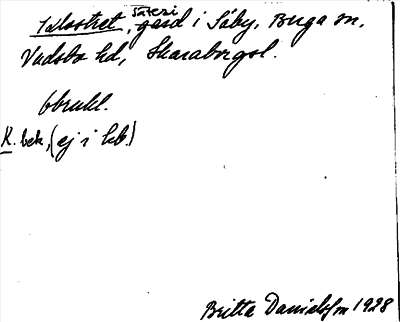 Klostret, säteri gård i Säby, Berga sn,
Vadsbo hd, Skaraborgsl.
obrukl.
K. bek, (ej i kb.)
Britta Danielson 1928